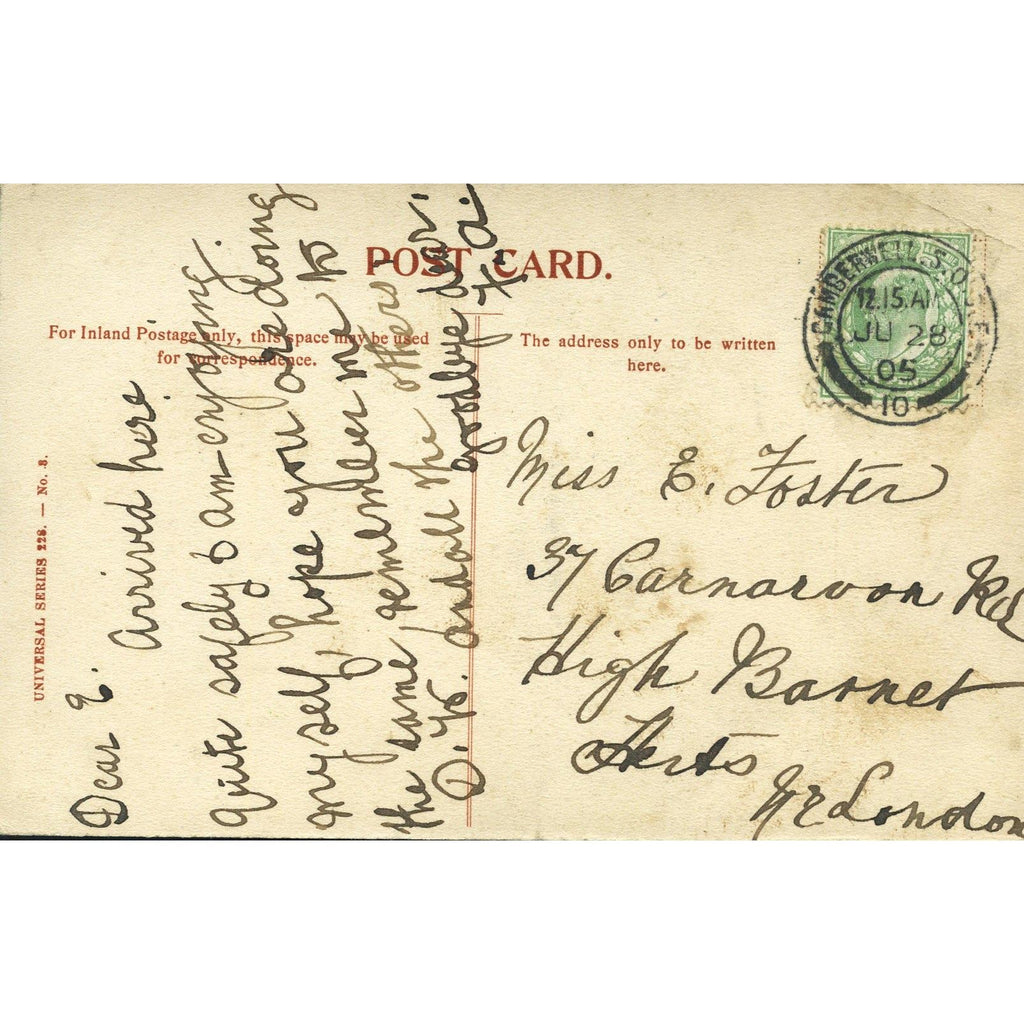 POST CARD.
For Inland Postage only, this space may be used
for correspondence.
The address only to be written
here.
UNIVERSAL SERIES 228. — No. 3.
CAMBERWELL S.O
12.15.AM
JU 28
05
10
Dear E. Arrived here
quite safely & am enjoying
myself, hope you are doing
the same remember me to
and all the others
goodbye dear.
Miss E. Foster
37 Carnarvon Rd
High Barnet
Herts
Nr London